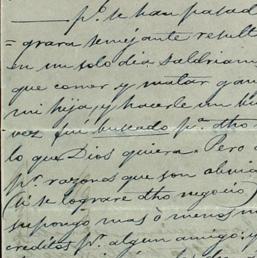 pr. te han pasad
= grara semejante result
en un solo dia saldriam
que comer y matar y an
mi hija, y hacerle un bu
vez fui buscado pa. dho
lo que Dios quiera. Pero
pr. razones que son obvia
(si se lograre dho negocio)
supongo mas ò menos
creditos pr. algun amigo: y